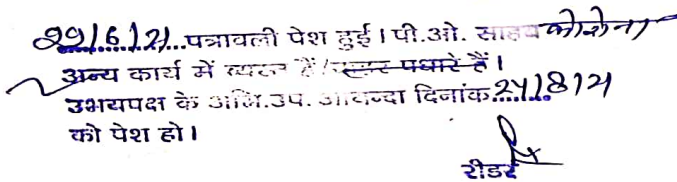 29/6/21 पत्रावली पेश हुई। पी.ओ. साहब कोरोना
अन्य कार्य में व्यस्त हैं/बाहर पधारे हैं।
उभयपक्ष के अभि.उप. आयन्दा दिनांक 24/8/21
को पेश हो।
रीडर